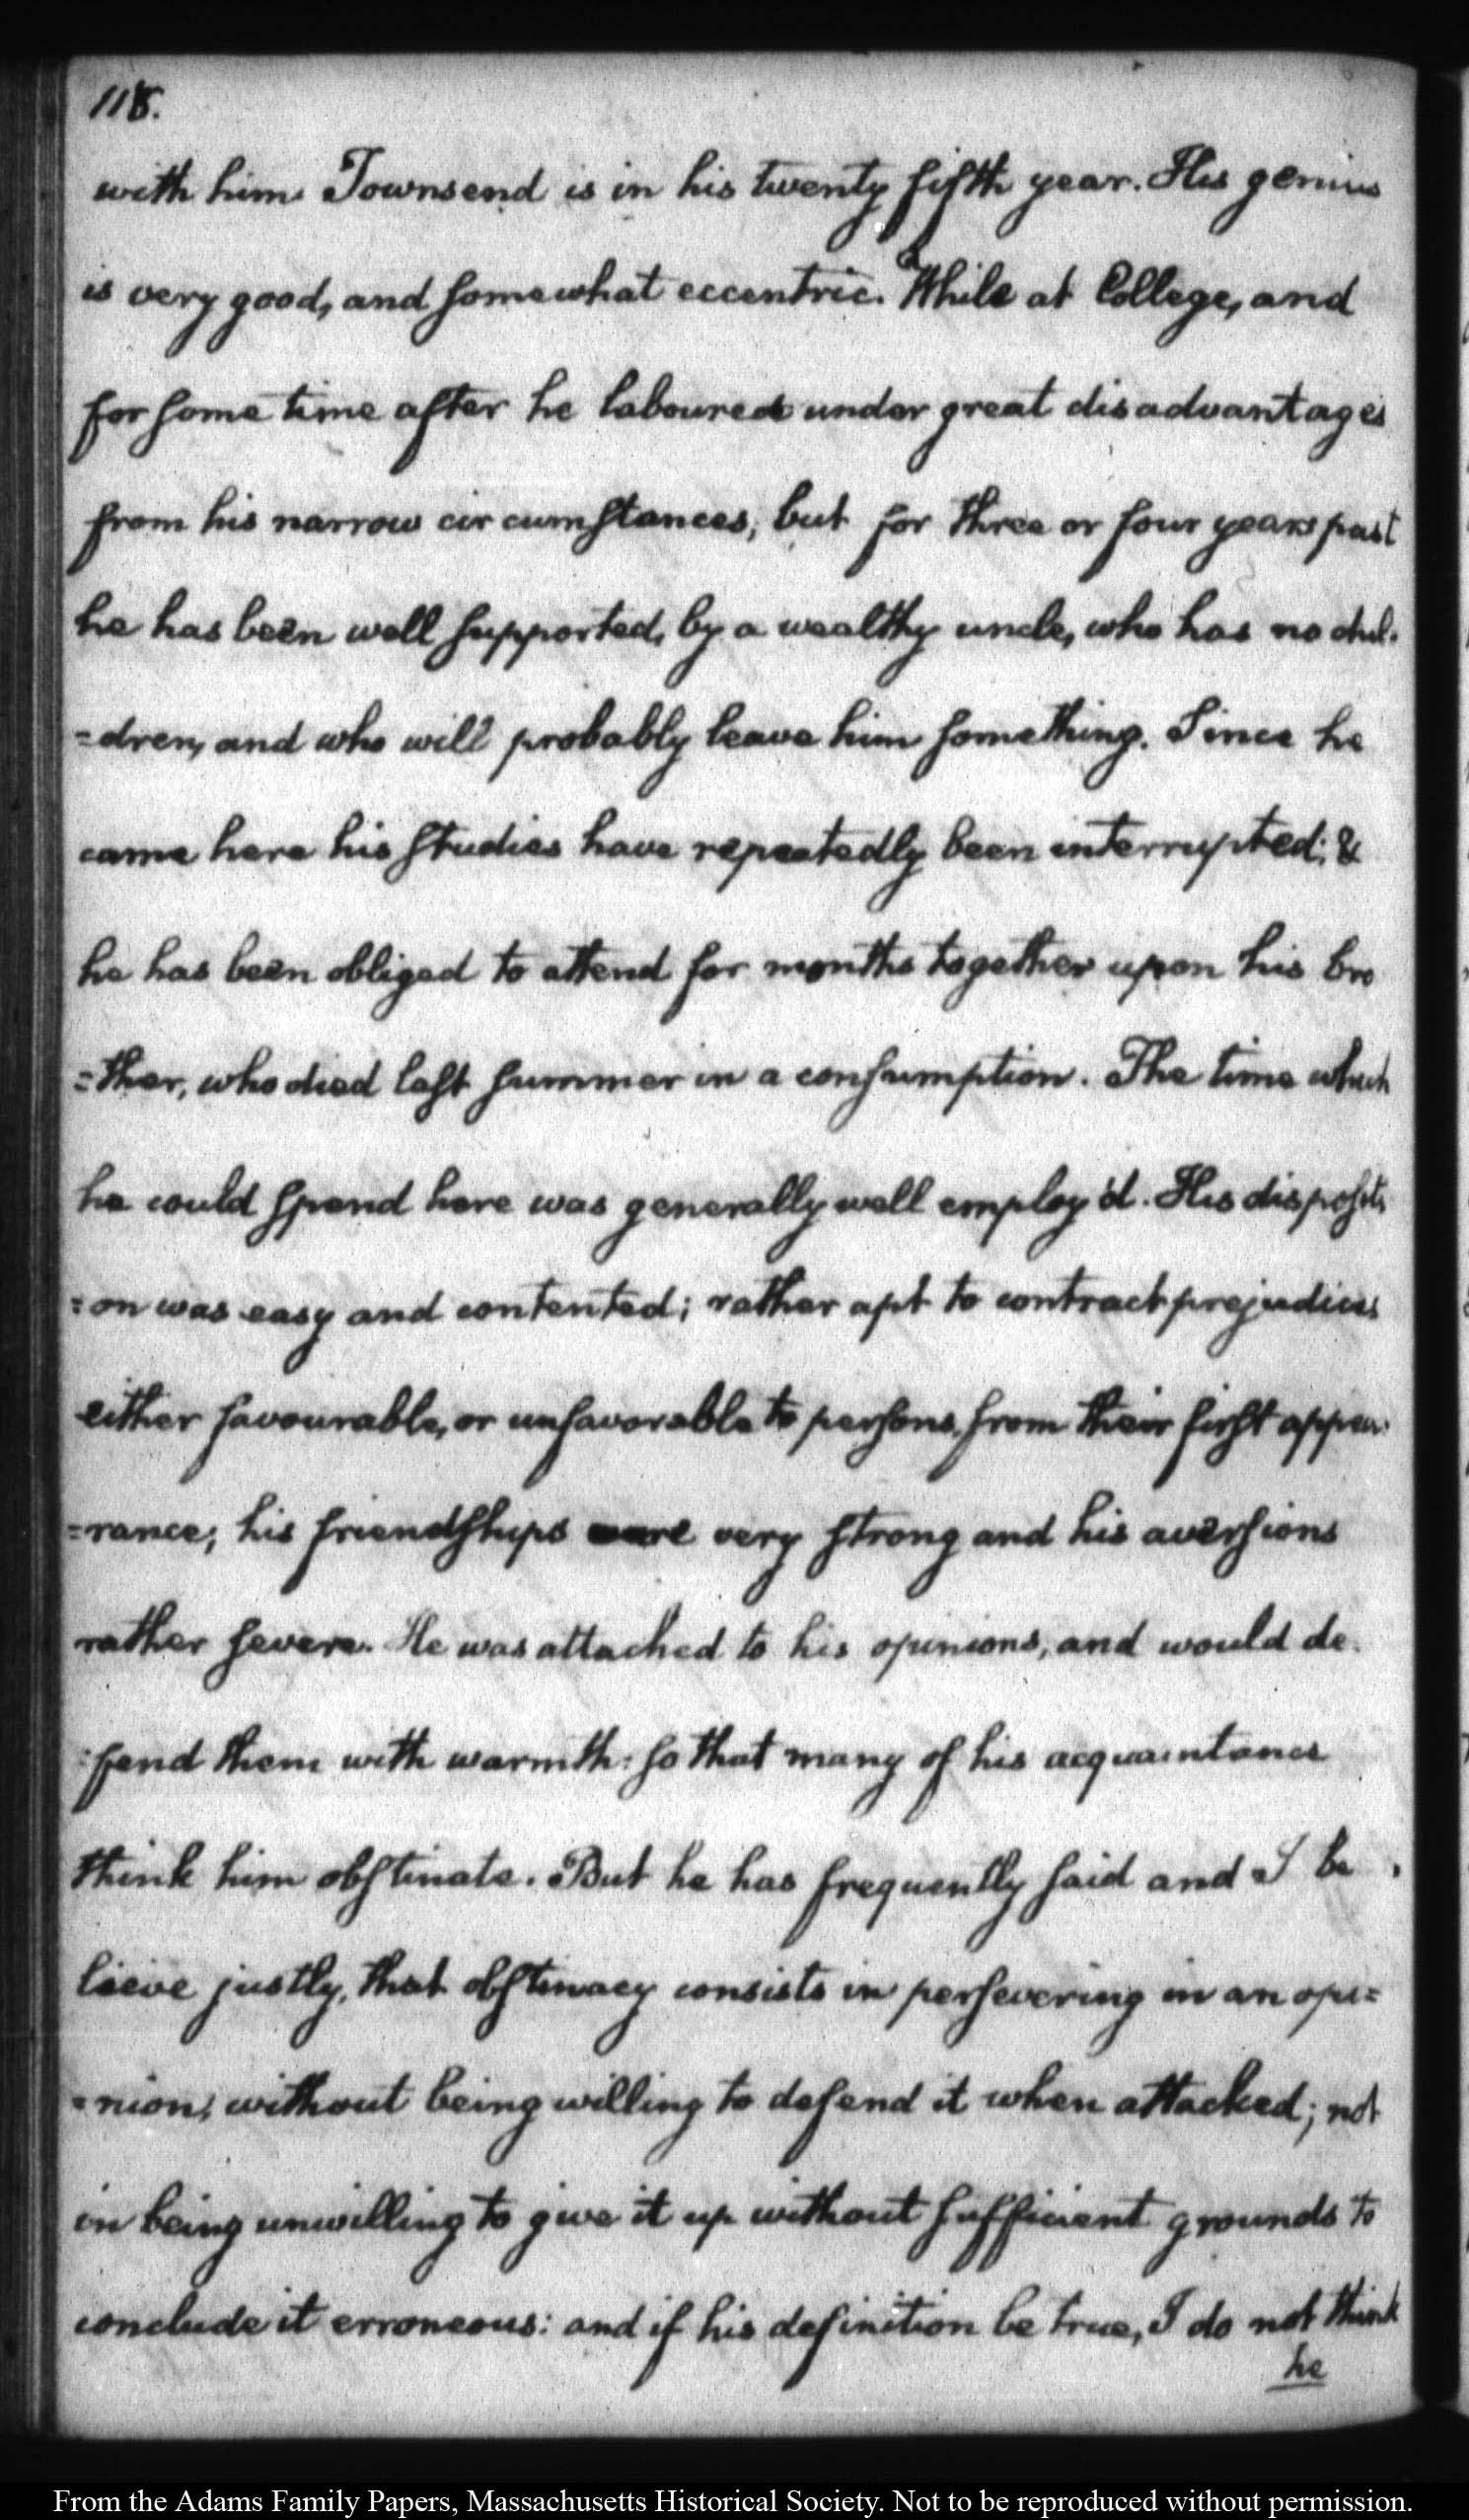 118.
with him. Townsend is in his twenty fifth year. His genius
is very good, and somewhat eccentric. While at College, and
for some time after he laboured under great disadvantages
from his narrow circumstances, but for three or four years past
he has been well supported, by a wealthy uncle, who has no chil-
=dren, and who will probably leave him something. Since he
came here his studies have repeatedly been interrupted; &
he has been obliged to attend for months together upon his bro
=ther, who died last summer in a consumption. The time which
he could spend here was generally well employ'd. His dispositi
=on was easy and contented; rather apt to contract prejudices
either favourable, or unfavorable to persons, from their first appea-
=rance; his friendships were very strong and his aversions
rather severe. He was attached to his opinions, and would de-
=fend them with warmth: so that many of his acquaintance
think him obstinate. But he has frequently said and I be
lieve justly, that obstinacy consists in persevering in an opi=
=nion, without being willing to defend it when attacked; not
in being unwilling to give it up without sufficient grounds to
conclude it erroneous: and if his definition be true, I do not think
he
From the Adams Family Papers, Massachusetts Historical Society. Not to be reproduced without permission.